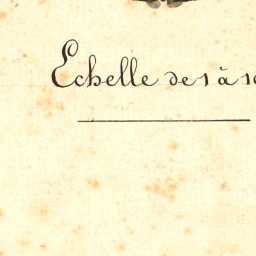 Echelle de 1 à 10